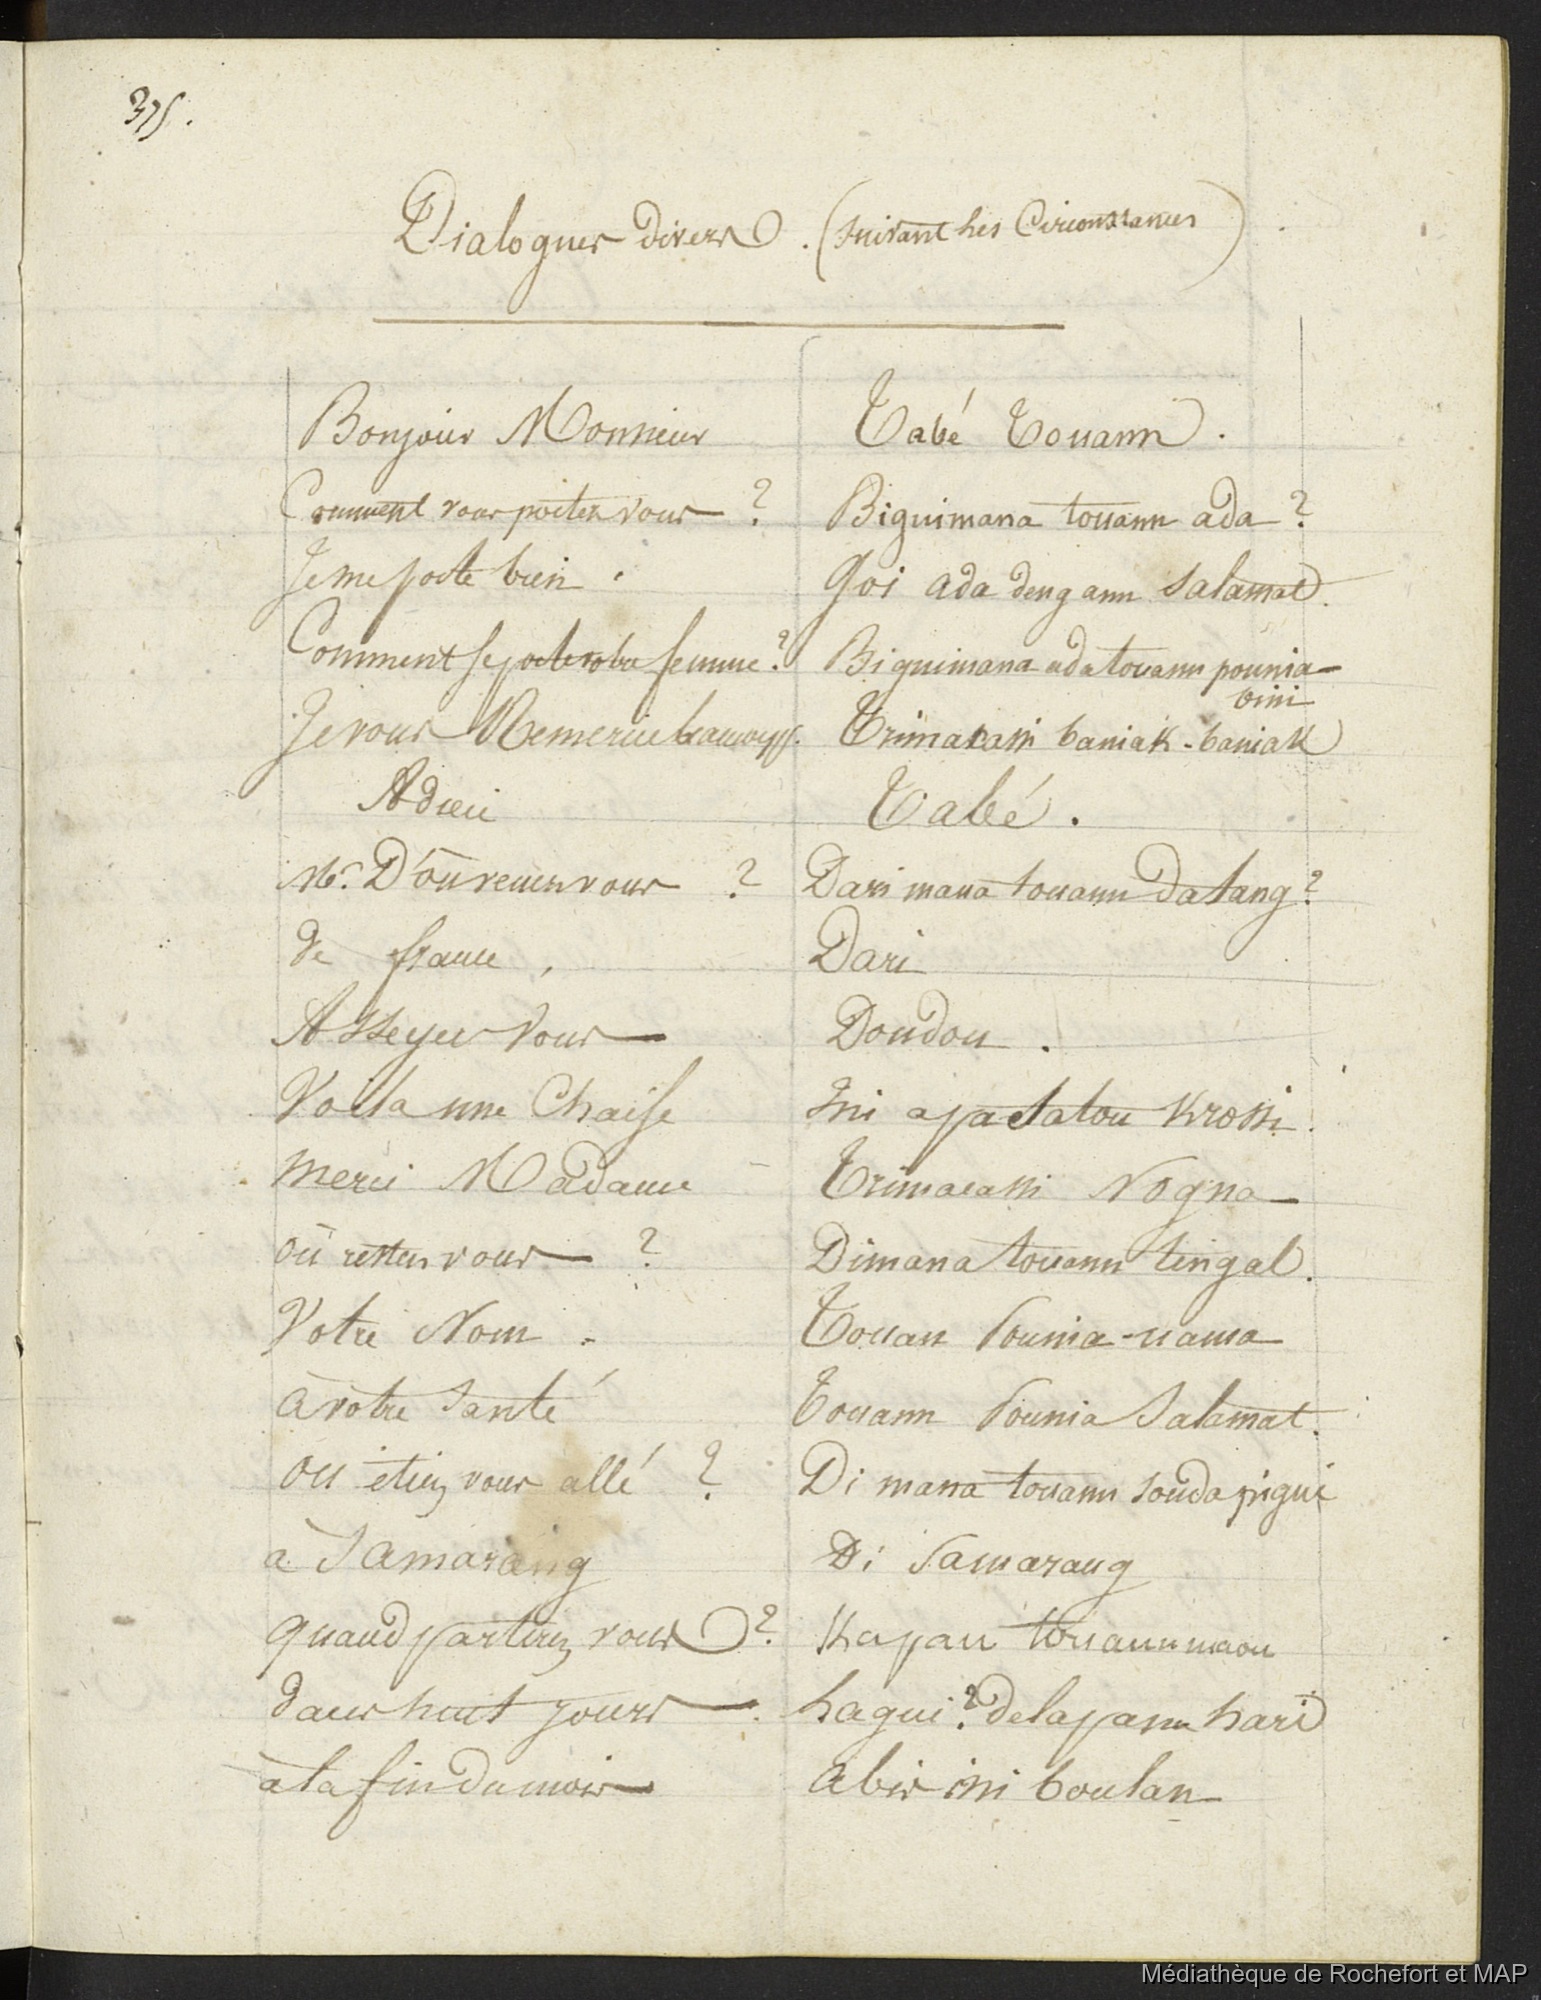 375.
Dialogues divers. (suivant les Circonstances)
Bonjour Monsieur Tabé Touann.
Comment vous portez vous ? Biguimana touann ada ?
Je me porte bien. Goi ada dengann Salamat.
Comment se porte votre femme ? Biguimana ada touann pounia-
bini
Je vous Remercie beaucoup. Trimacassi baniak-baniak
Adieu Tabé.
Mr. D'où venez vous ? Dari mana touann Datang ?
de france, Dari
Asseyez Vous Doudou.
Voila une Chaise Ini apa Satou Krossi.
Merci Madame Trimacassi Nogna
où restez vous ? Dimana touann tingal.
Votre Nom. Touan Pounia-nama
à votre Santé Touann Pounia Salamat.
ou étiez vous allé ? Di mana touann souda pigui
à Samarang Di Samarang
quand partirez vous ? Kapan touann maou
dans huit jours. lagui ? delapann hari
à la fin du mois abis ini boulan
Médiathèque de Rochefort et MAP